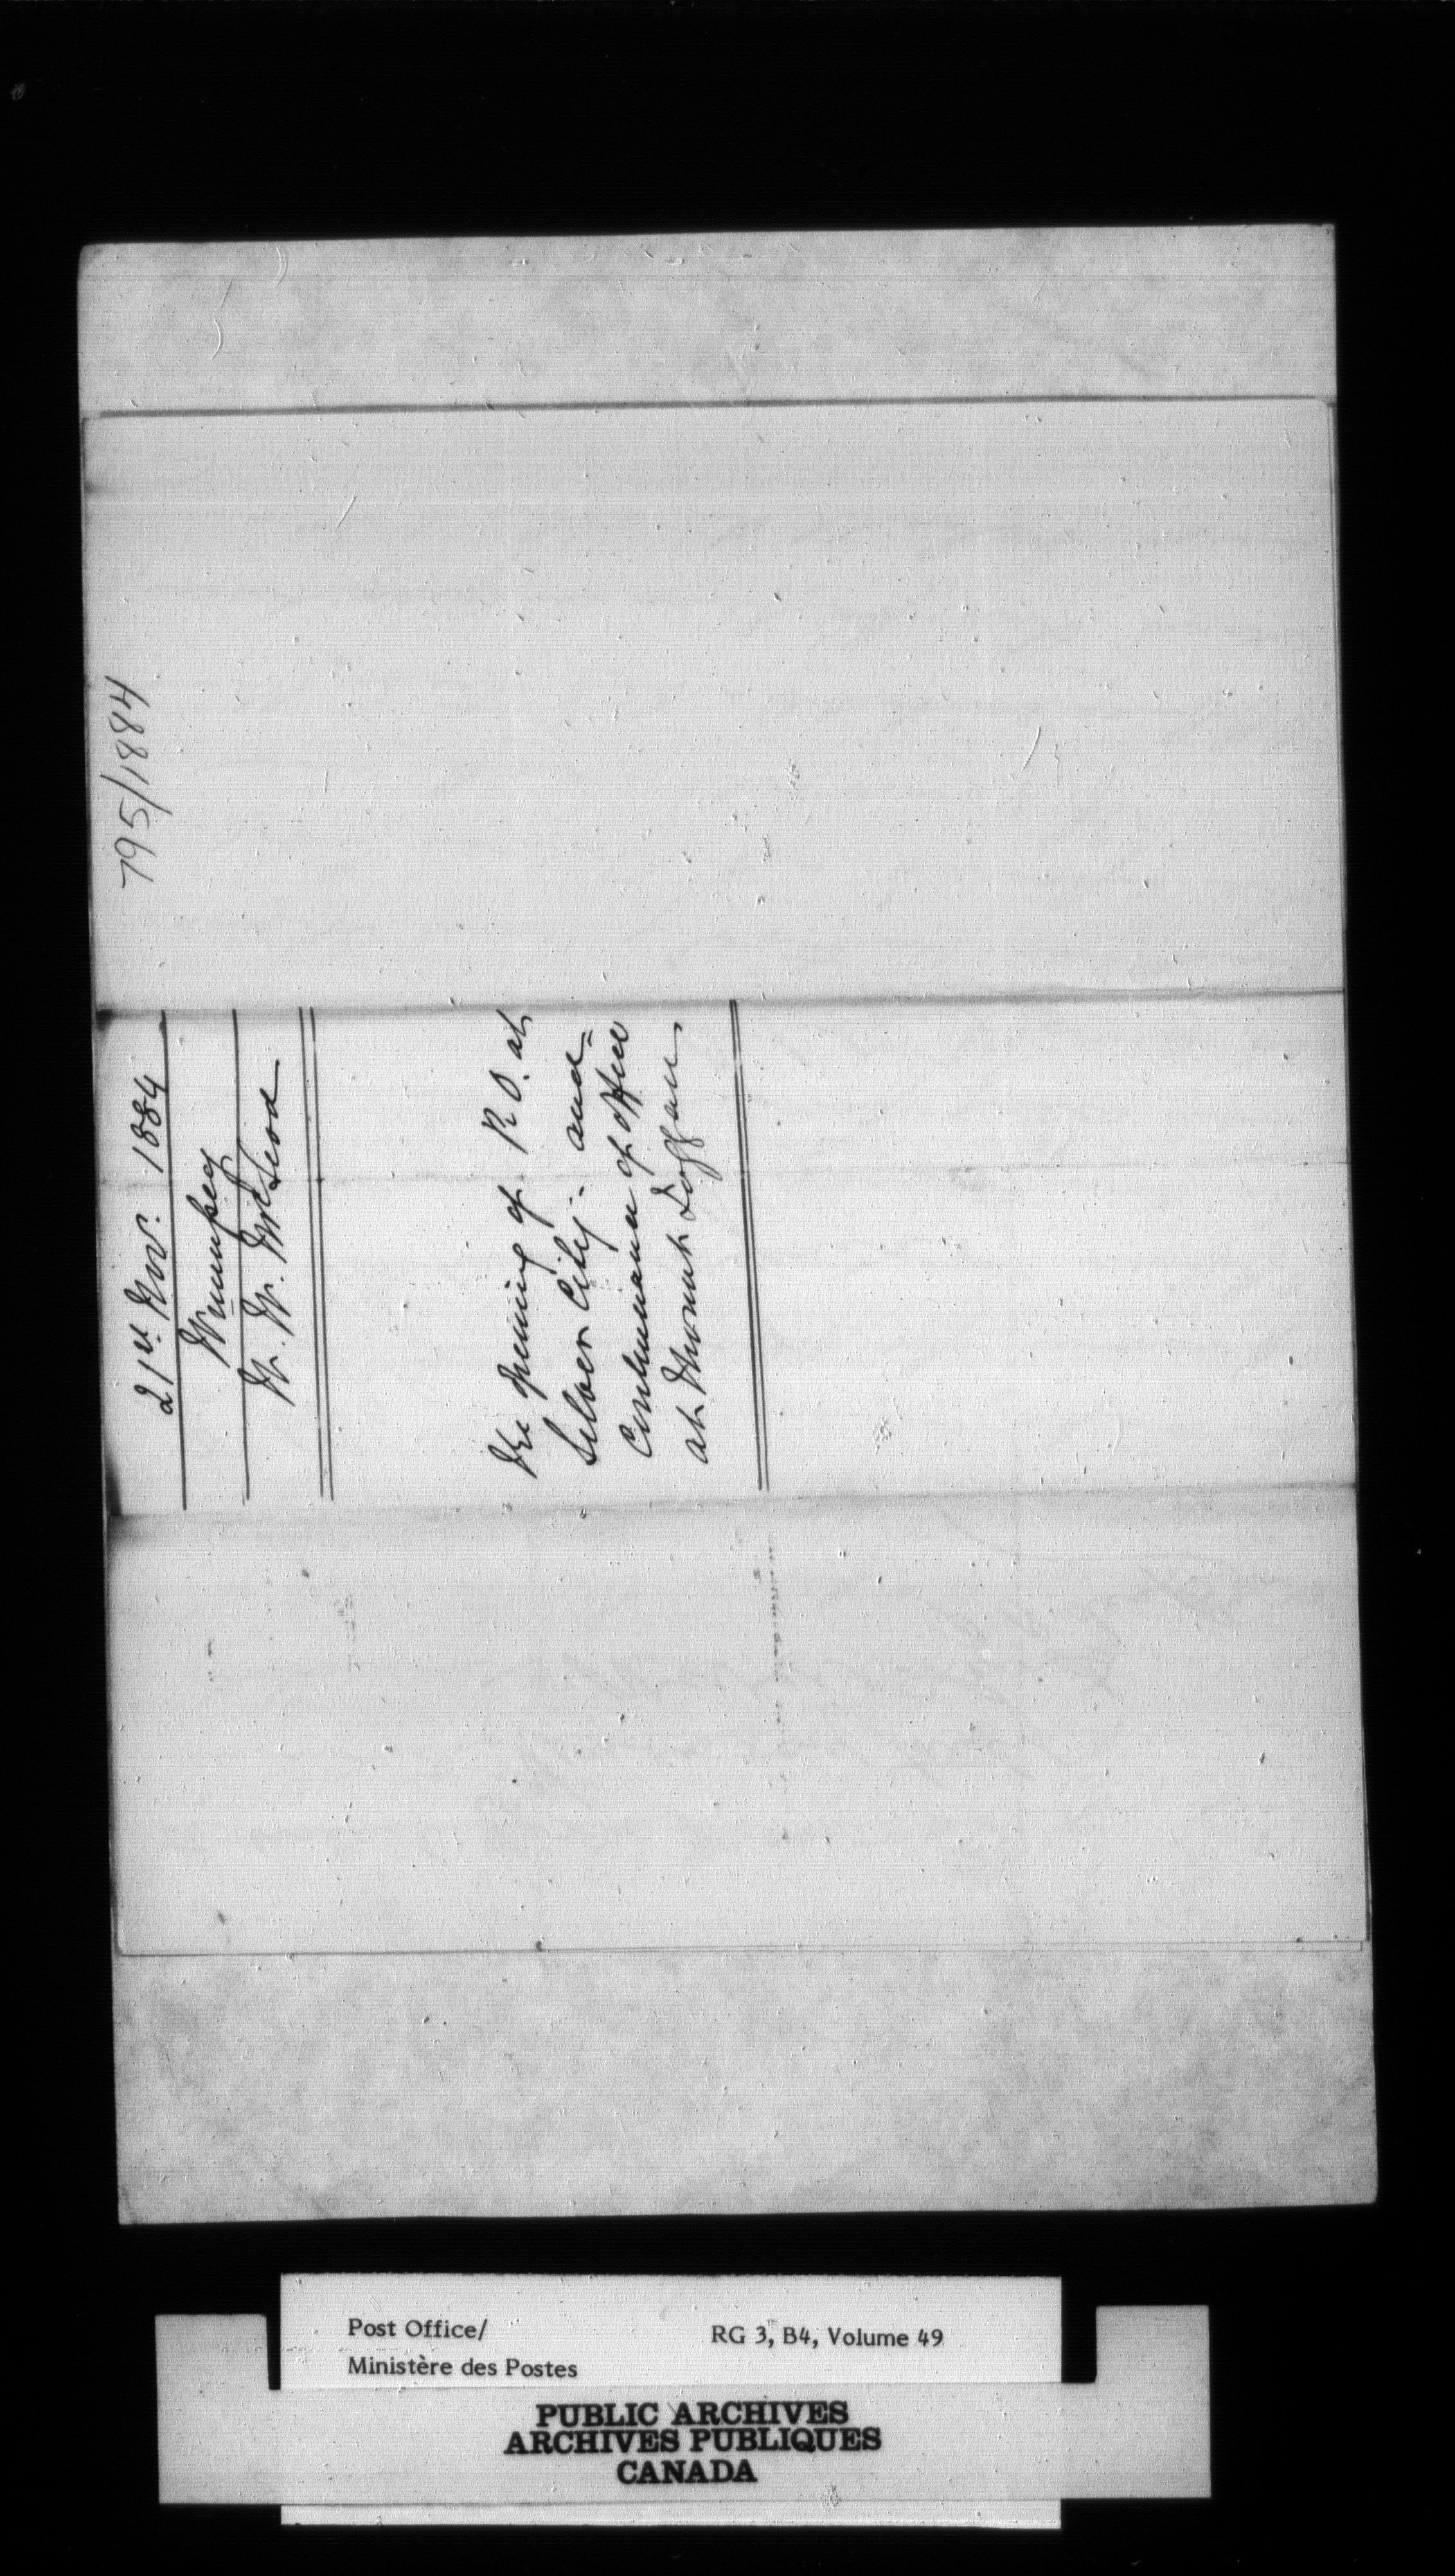 795/1884
21st Nov. 1884
Winnipeg
W. W. McLeod
The opening of P.O. at
Silver City - and
continuance of office
at Mount
Post Office/
Ministère des Postes
RG 3, B4, Volume 49
PUBLIC ARCHIVES
ARCHIVES PUBLIQUES
CANADA